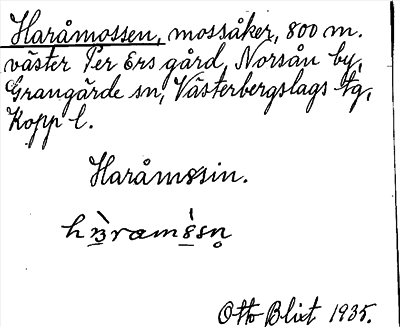 Haråmossen, mossåker, 800 m.
väster Per Ers gård, Norsån by,
Grangärde sn, Västerbergslags tg,
Kopp l.
Haråmssin.
Otto Blixt 1935.